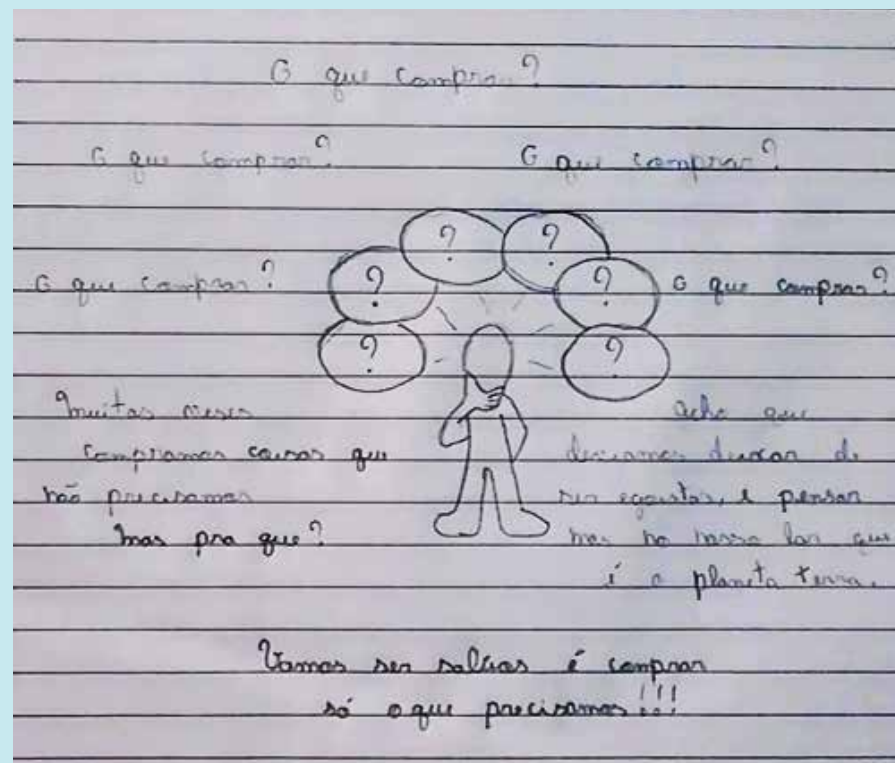 O que comprar?
O que comprar?
O que comprar?
O que comprar?
O que comprar?
?
?
?
?
?
?
Muitas veses
compramos coisas que
não precisamos
mas pra que?
Acho que
deviamos deixar de
ser egoistas, e pensar
mas no nosso lar que
é o planeta terra.
Vamos ser sabias é comprar
só o que precisamos!!!